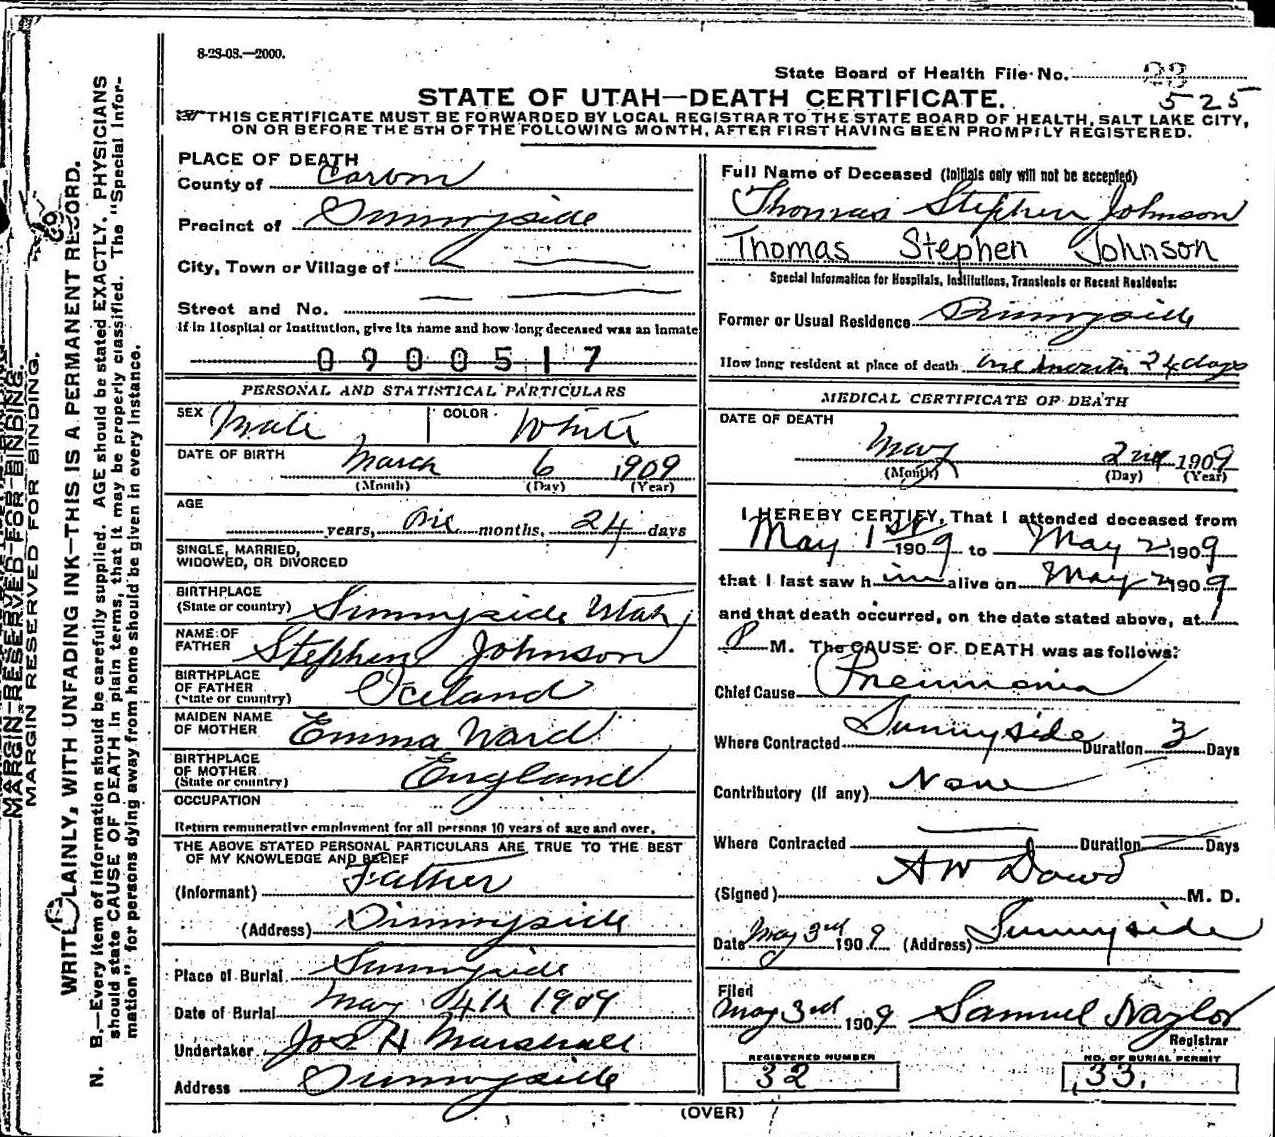 8-28-08.—2000.
State Board of Health File No. 23
525
STATE OF UTAH—DEATH CERTIFICATE.
THIS CERTIFICATE MUST BE FORWARDED BY LOCAL REGISTRAR TO THE STATE BOARD OF HEALTH, SALT LAKE CITY,
ON OR BEFORE THE 5TH OF THE FOLLOWING MONTH, AFTER FIRST HAVING BEEN PROMPTLY REGISTERED.
PLACE OF DEATH
County of Carbon
Precinct of Sunnyside
City, Town or Village of
Street and No.
If in Hospital or Institution, give its name and how long deceased was an inmate
0900517
PERSONAL AND STATISTICAL PARTICULARS
SEX Male COLOR White
DATE OF BIRTH March 6 1909
(Month) (Day) (Year)
AGE
years, One months, 24 days
SINGLE, MARRIED,
WIDOWED, OR DIVORCED
BIRTHPLACE
(State or country) Sunnyside Utah
NAME OF
FATHER Stephen Johnson
BIRTHPLACE
OF FATHER
(State or country) Iceland
MAIDEN NAME
OF MOTHER Emma Ward
BIRTHPLACE
OF MOTHER
(State or country) England
OCCUPATION
Return remunerative employment for all persons 10 years of age and over.
THE ABOVE STATED PERSONAL PARTICULARS ARE TRUE TO THE BEST
OF MY KNOWLEDGE AND BELIEF
(Informant) Father
(Address) Sunnyside
Place of Burial Sunnyside
Date of Burial May 4th 1909
Undertaker Jos H Marshall
Address Sunnyside
Full Name of Deceased (Initials only will not be accepted)
Thomas Stephen Johnson
Thomas Stephen Johnson
Special Information for Hospitals, Institutions, Transients or Recent Residents:
Former or Usual Residence Sunnyside
How long resident at place of death one month 24 days
MEDICAL CERTIFICATE OF DEATH
DATE OF DEATH
May 2nd 1909
(Month) (Day) (Year)
I HEREBY CERTIFY, That I attended deceased from
May 1st 1909 to May 2 1909
that I last saw him alive on May 2 1909
and that death occurred, on the date stated above, at 1
P M. The CAUSE OF DEATH was as follows:
Chief Cause Pneumonia
Where Contracted Sunnyside Duration 3 Days
Contributory (if any) None
Where Contracted Duration Days
(Signed) A W Dowd M. D.
Date May 3rd 1909 (Address) Sunnyside
Filed
May 3rd 1909 Samuel Naylor
Registrar
REGISTERED NUMBER
32
NO. OF BURIAL PERMIT
33.
(OVER)
MARGIN RESERVED FOR BINDING.
MARGIN RESERVED FOR BINDING.
WRITE PLAINLY, WITH UNFADING INK—THIS IS A PERMANENT RECORD.
N. B.—Every item of information should be carefully supplied. AGE should be stated EXACTLY. PHYSICIANS
should state CAUSE OF DEATH in plain terms, that it may be properly classified. The "Special Infor-
mation" for persons dying away from home should be given in every instance.